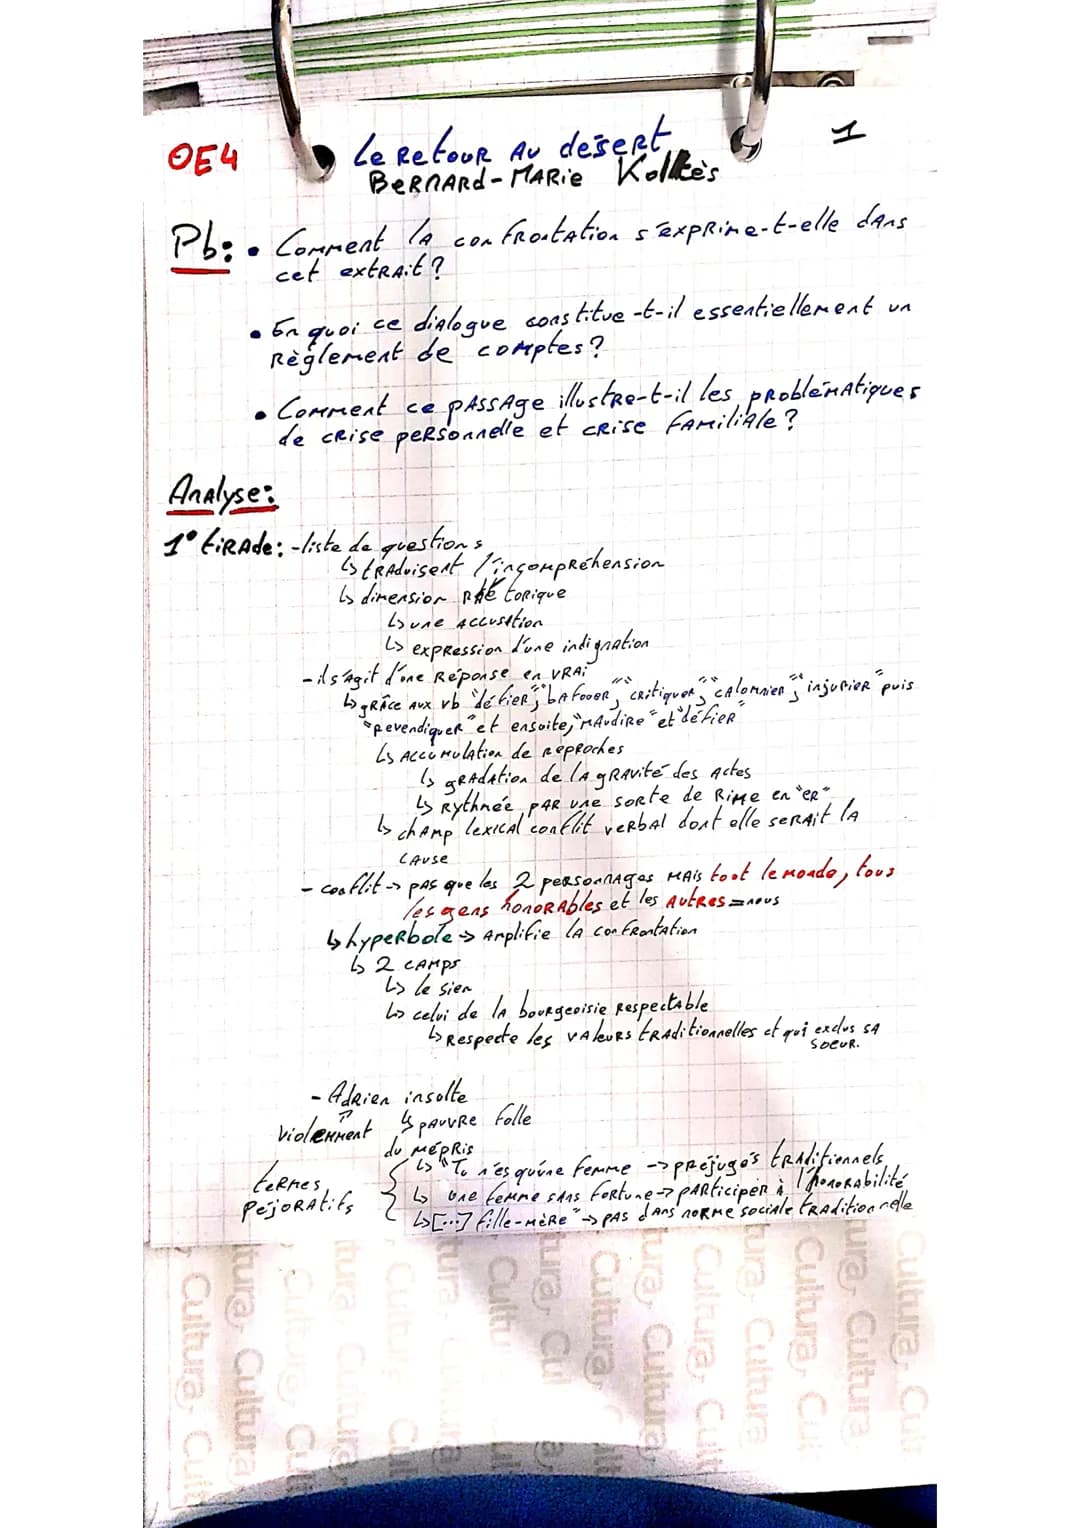 OE4
Le Retour Au désert
1
Bernard-Marie Koltès
Pb: • Comment la confrontation s'exprime-t-elle dans
cet extrait ?
• En quoi ce dialogue constitue-t-il essentiellement un
Règlement de comptes ?
• Comment ce passage illustre-t-il les problématiques
de crise personnelle et crise familiale ?
Analyse:
1° tirade: - liste de questions
↳ traduisent l'incompréhension
↳ dimension rhétorique
↳ une accusation
↳ expression d'une indignation
- il s'agit d'une Réponse en vrai
↳ grâce aux vb "défier", "bafouer", "critiquer", "calomnier", "injurier" puis
"revendiquer" et ensuite, "maudire" et "défier"
↳ Accumulation de reproches
↳ gradation de la gravité des actes
↳ Rythmée par une sorte de Rime en "er"
↳ champ lexical conflit verbal dont elle serait la
cause
- conflit → pas que les 2 personnages mais tout le monde, tous
les gens honorables et les autres = nous
↳ hyperbole → Amplifie la confrontation
↳ 2 camps
↳ le sien
↳ celui de la bourgeoisie respectable
↳ Respecte les valeurs traditionnelles et qui exclus sa
soeur.
- Adrien insulte
violemment ↳ pauvre folle
du mépris
↳ "Tu n'es qu'une femme → préjugés traditionnels
termes
péjoratifs
↳ une femme sans fortune → participer à l'honorabilité
↳ [...] fille-mère" → pas dans norme sociale traditionnelle
Cultura